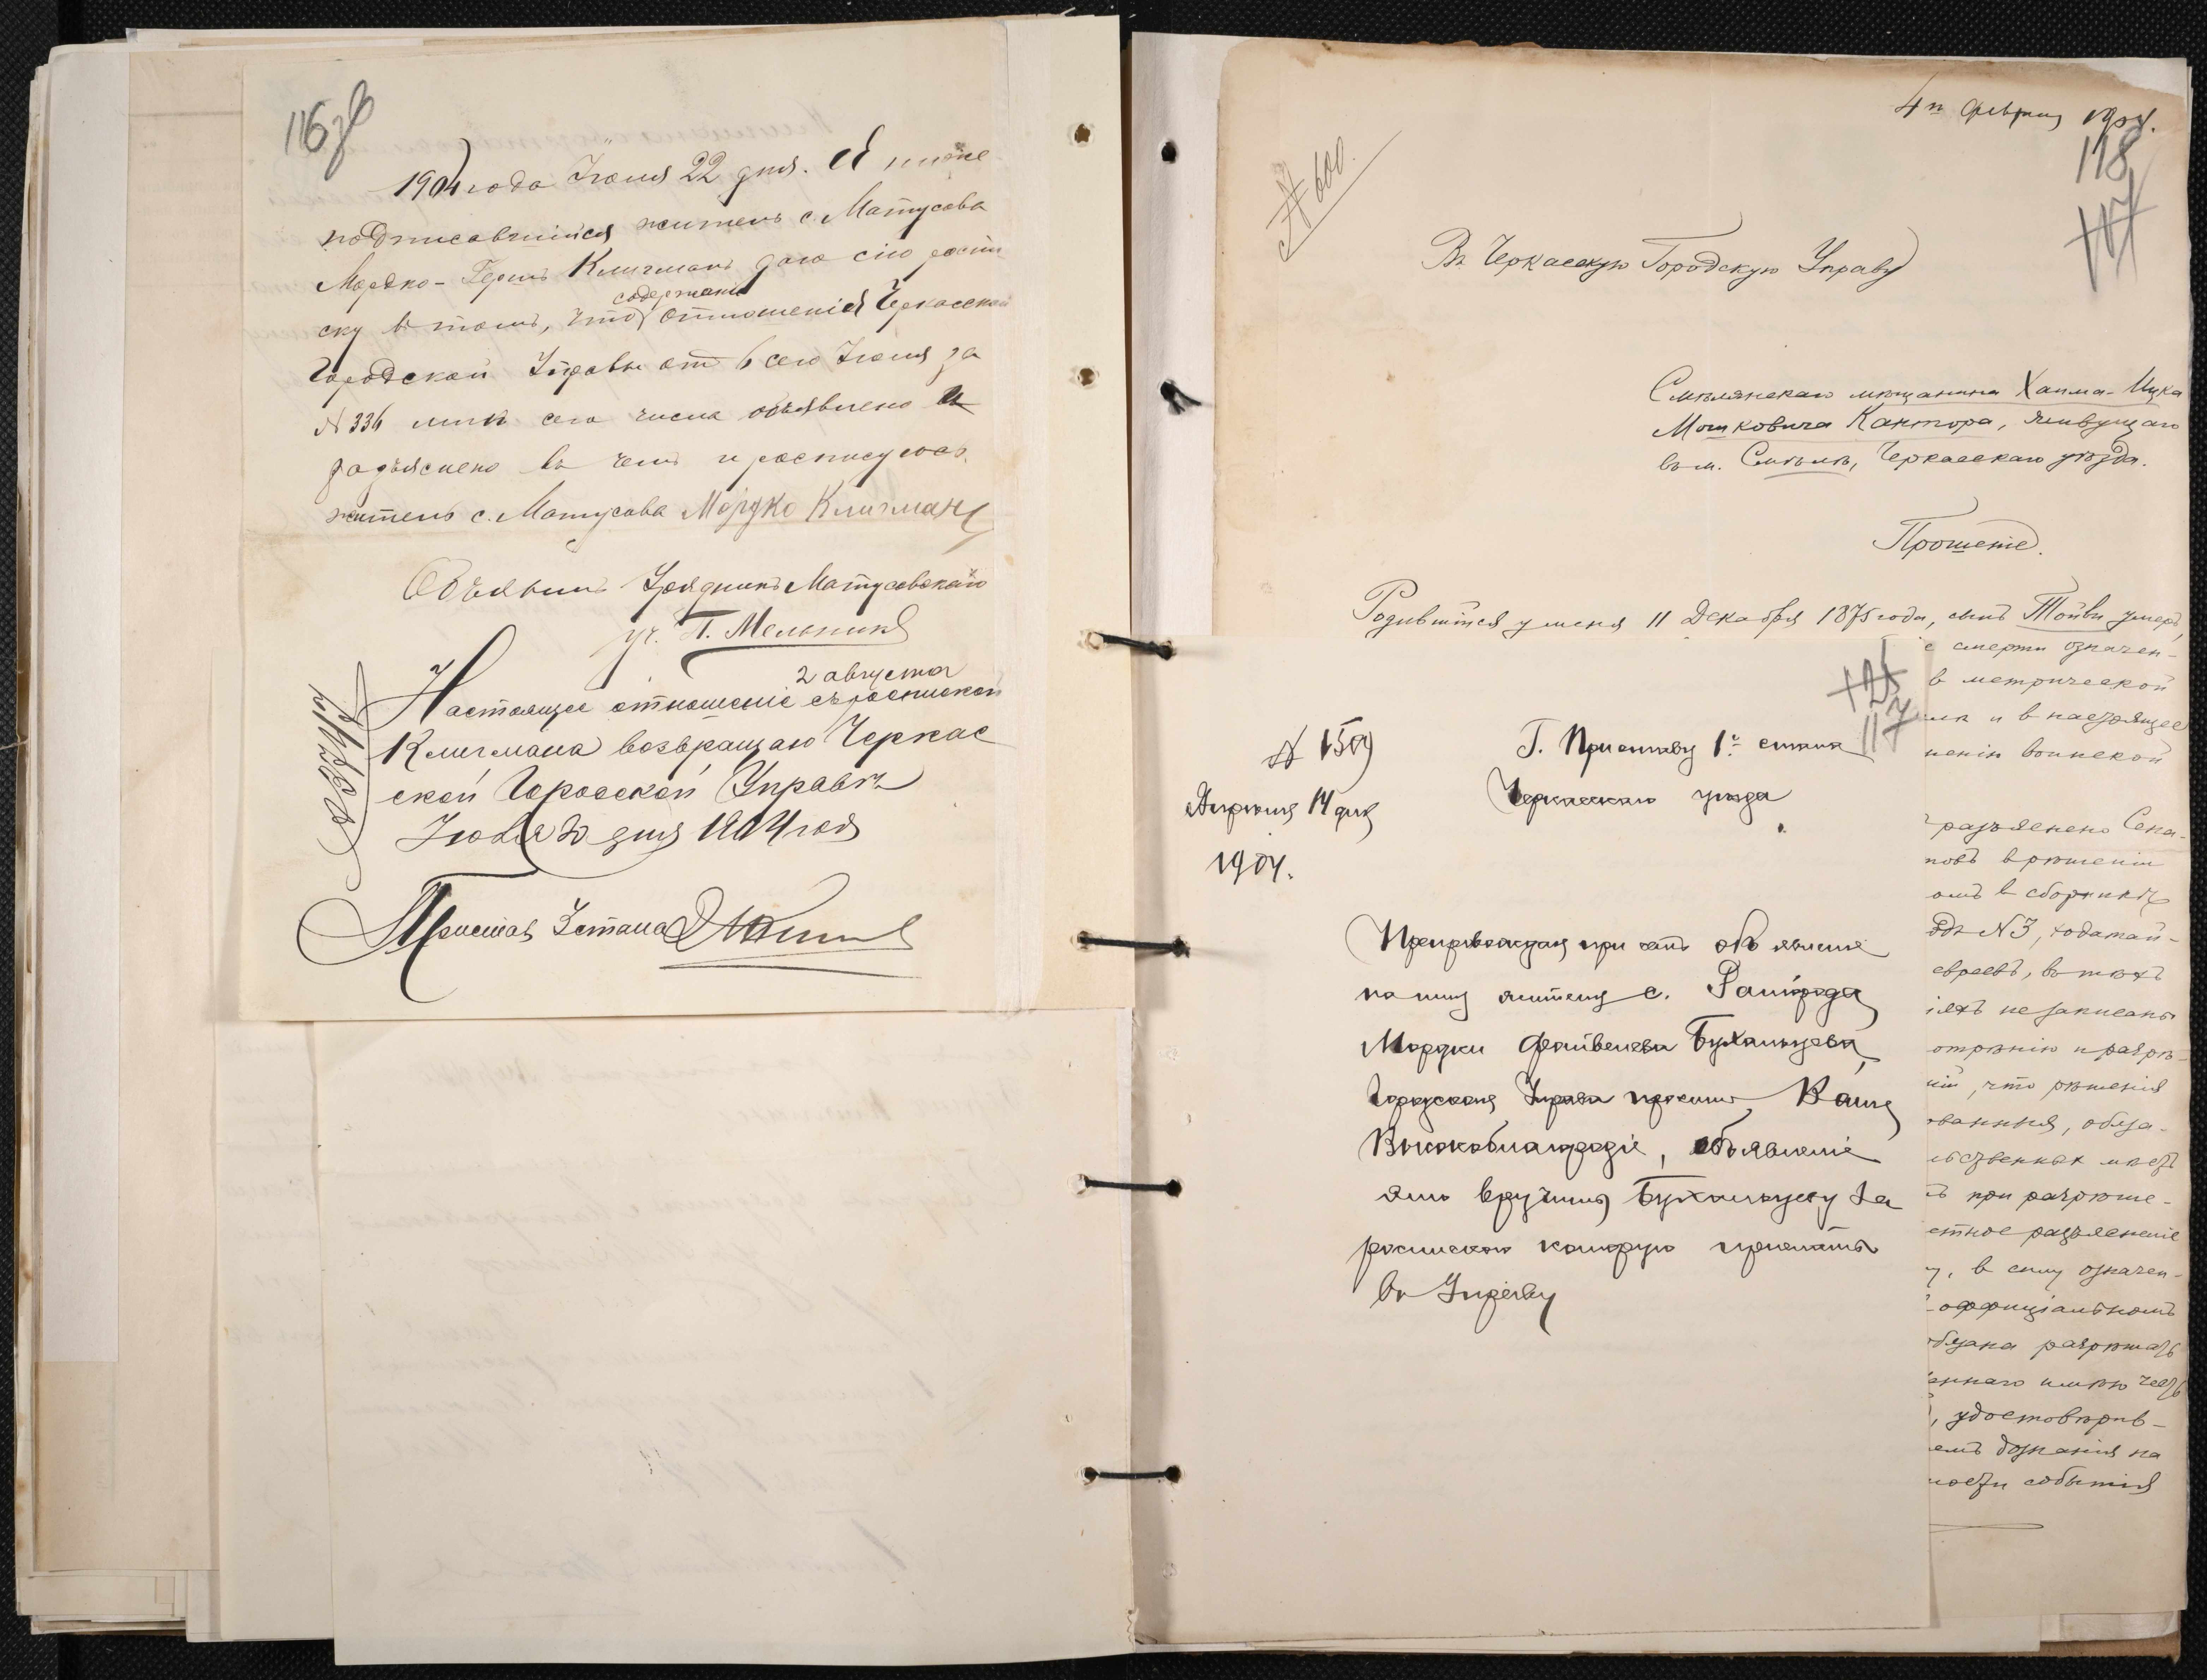 116 об
1904 года Іюля 22 дня. Я ниже
подписавшийся житель с. Матусова
Мордко-Герш Клигман даю сію роспи
ску в том, что содержаніе отношенія Черкасской
Городской Управы от 6 сего Іюля за
№ 336 мнѣ сего числа объявлено и
разъяснено в чем и росписуюсь.
житель с. Матусова Мордко Клигман
Объявил Урядникъ Матусовскаго
уч. П. Мельник
2 августа
Настоящее отношеніе съ роспиской
Клигмана возвращаю Черкас
ской Городской Управѣ
Іюля 30 дня 1904 года
Пристав 3 стана
4го февраля 1904.
118
117
№ 600.
Въ Черкасскую Городскую Управу
Смѣлянскаго мѣщанина Хаима-Ицка
Мошковича Кантора, живущаго
въ м. Смѣлѣ, Черкасскаго уѣзда.
Прошеніе.
Родившійся у меня 11 Декабря 1875 года, сынъ Тойви умеръ,
е смерти означен-
в метрической
и в настоящее
ненію воинской
разъяснено Сена-
новъ в рѣшеніи
омъ в сборникѣ
одъ №3, ходатай-
евреевъ, въ тѣхъ
іяхъ не записаны
отрѣнію и разрѣ-
ій, что рѣшенія
ованныя, обяза-
льственных мѣстъ
ъ при разрѣше-
стное разъясненіе
у, в силу означен-
оффиціальномъ
обязана разрѣшать
еннаго имѣю честь
, удостовѣрив-
емъ дознанія на
ности событія
121
117
№ 1509
Апрѣля 14 дня
1904.
Г. Приставу 1го стана
Черкасскаго уѣзда
Препровождая при семъ объявленіе
на имя жителя с.
Мордки Файвелева Бухальцева,
Городская Управа проситъ Ваше
Высокоблагородіе, объявленіе
это вручить Бухальцеву за
роспискою которую прислать
въ Управу